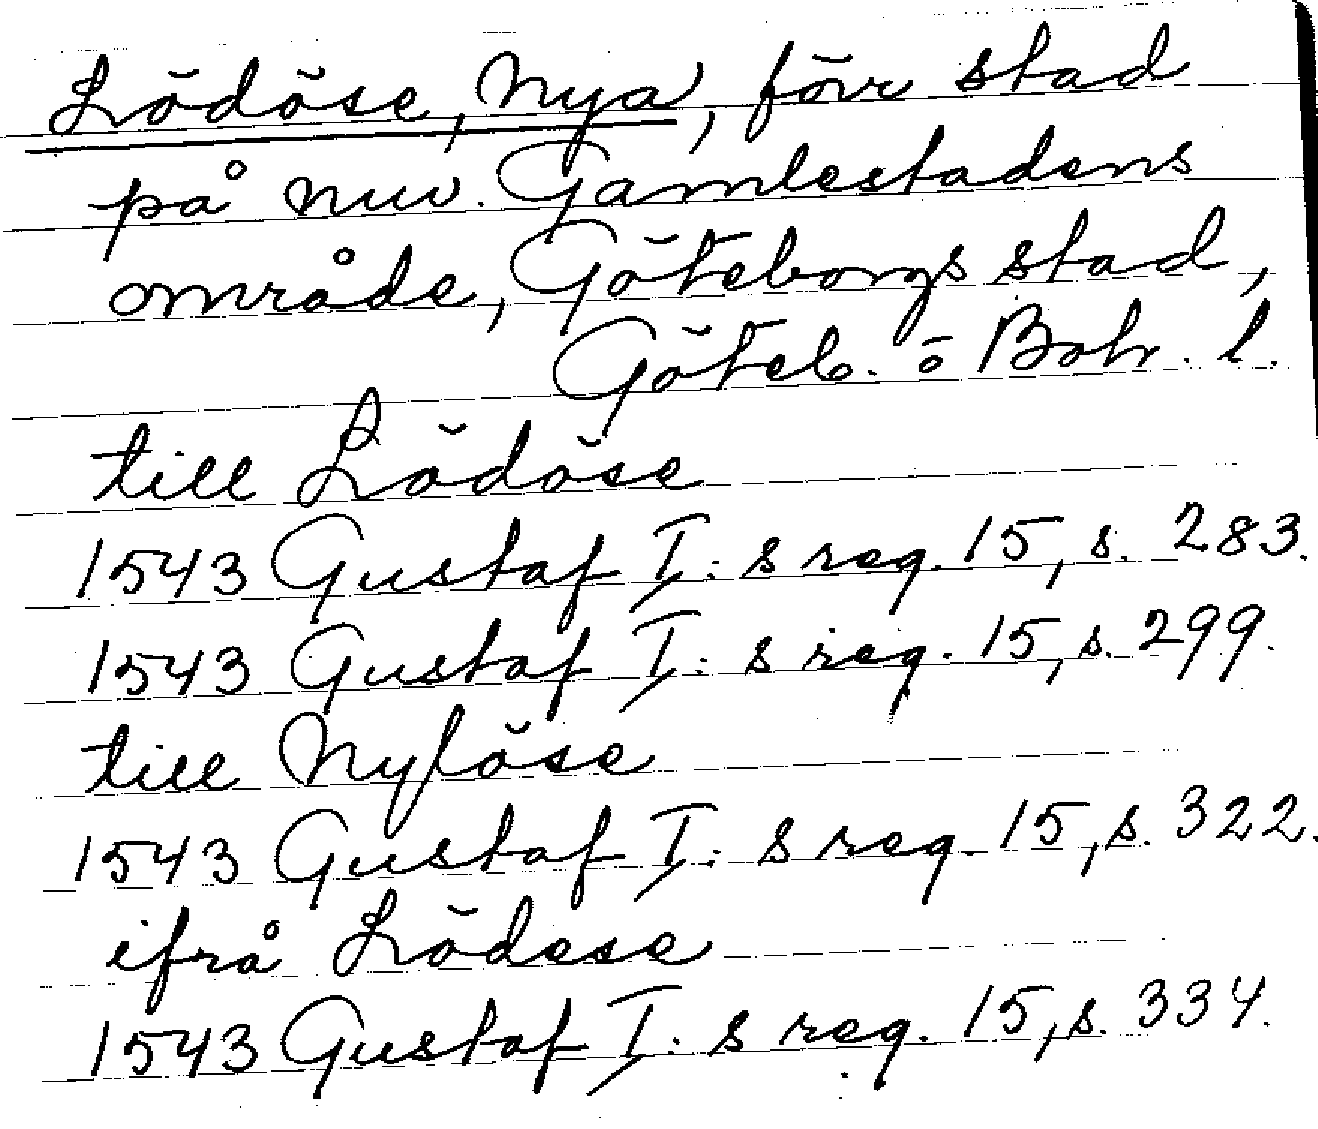 Lödöse, Nya, förr stad
på nuv. Gamlestadens
område, Göteborgs stad,
Göteb. o Boh. l.
till Lödöse
1543 Gustaf I:s reg. 15, s. 283.
1543 Gustaf I:s reg. 15, s. 299.
till Nylöse
1543 Gustaf I:s reg. 15, s. 322.
ifrå Lödese
1543 Gustaf I:s reg. 15, s. 334.